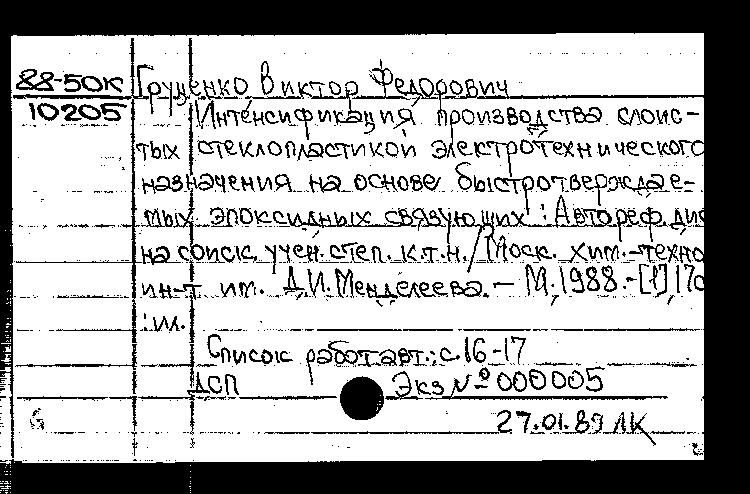 88-50К Груценко Виктор Федорович
10205 Интенсификация производства слоис-
тых стеклопластикой электротехнического
назначения на основе быстротверждае-
мых эпоксидных связующих : Автореф. дис
на соиск. учен. степ. к.т.н. / Моск. хим.-техно
ин-т им. Д.И. Менделеева. – М., 1988. – [1], 17с
: ил.
Список работ авт.: с. 16-17
ДСП Экз № 000005
27.01.89 ЛК